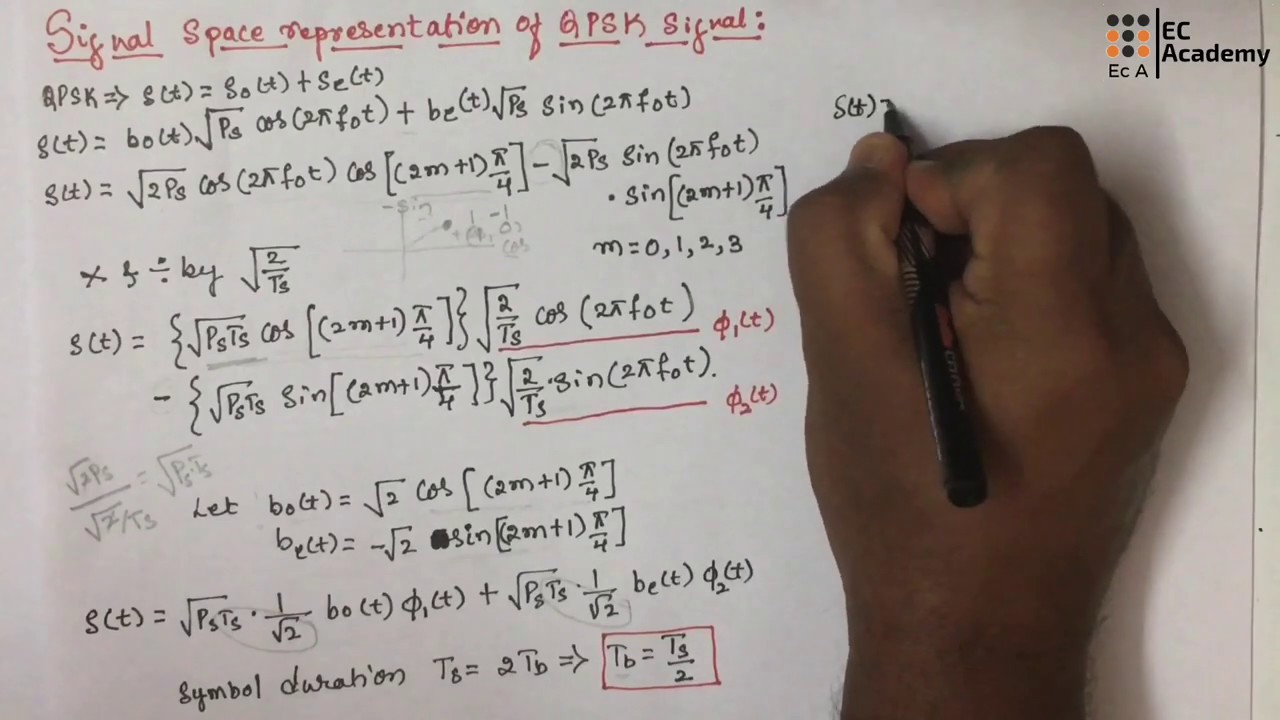 Signal Space representation of QPSK Signal:
EC
Academy
Ec A
QPSK => S(t) = So(t) + Se(t)
S(t) = bo(t) √Ps cos(2πfot) + be(t) √Ps sin(2πfot)
S(t) = √2Ps cos(2πfot) cos[(2m+1) π/4] - √2Ps sin(2πfot)
· sin[(2m+1) π/4]
-sin
cos
m = 0, 1, 2, 3
× & ÷ by √2/Ts
S(t) = {√PsTs cos[(2m+1) π/4]} √2/Ts cos(2πfot) φ1(t)
- {√PsTs sin[(2m+1) π/4]} √2/Ts · sin(2πfot). φ2(t)
√2Ps / √2/Ts = √Ps Ts
Let bo(t) = √2 cos[(2m+1) π/4]
be(t) = -√2 sin[(2m+1) π/4]
S(t) = √PsTs · 1/√2 bo(t) φ1(t) + √PsTs · 1/√2 be(t) φ2(t)
Symbol duration Ts = 2Tb => Tb = Ts/2
S(t) =